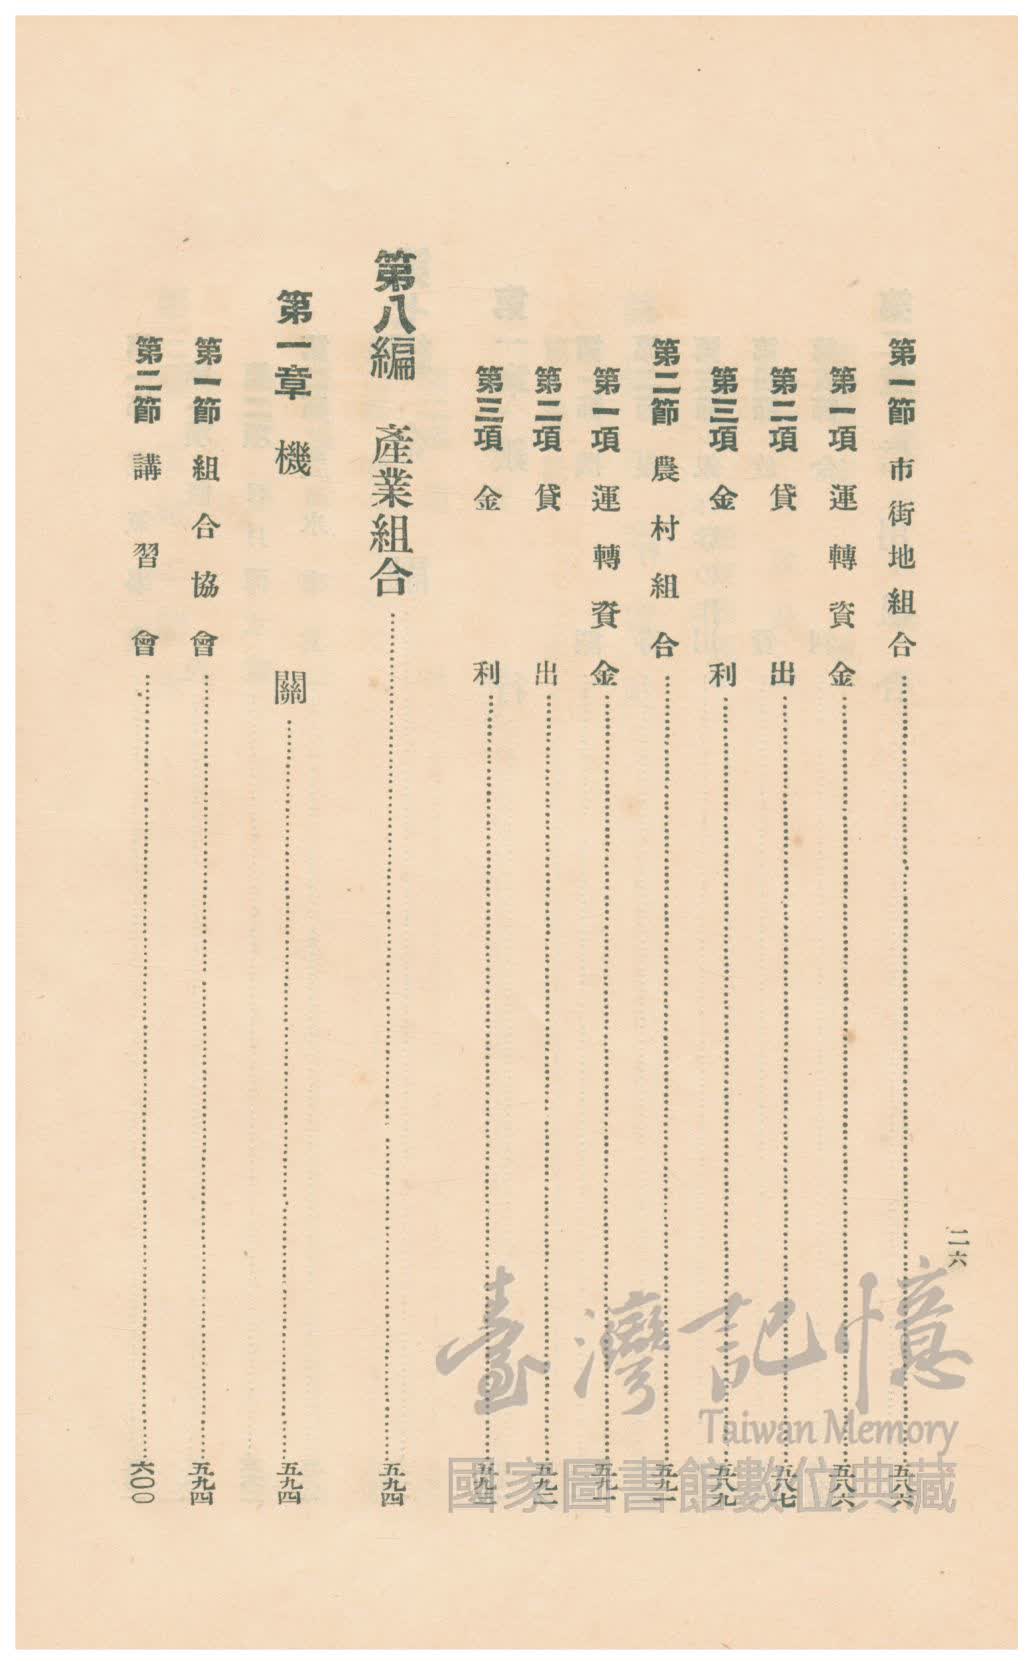 二六
第一節 市街地組合……五八六
第一項 運轉資金……五八六
第二項 貸出……五八七
第三項 金利……五八九
第二節 農村組合……五九一
第一項 運轉資金……五九一
第二項 貸出……五九二
第三項 金利……
第八編 產業組合……五九四
第一章 機關……五九四
第一節 組合協會……五九四
第二節 講習會……六〇〇
臺灣記憶
Taiwan Memory
國家圖書館數位典藏